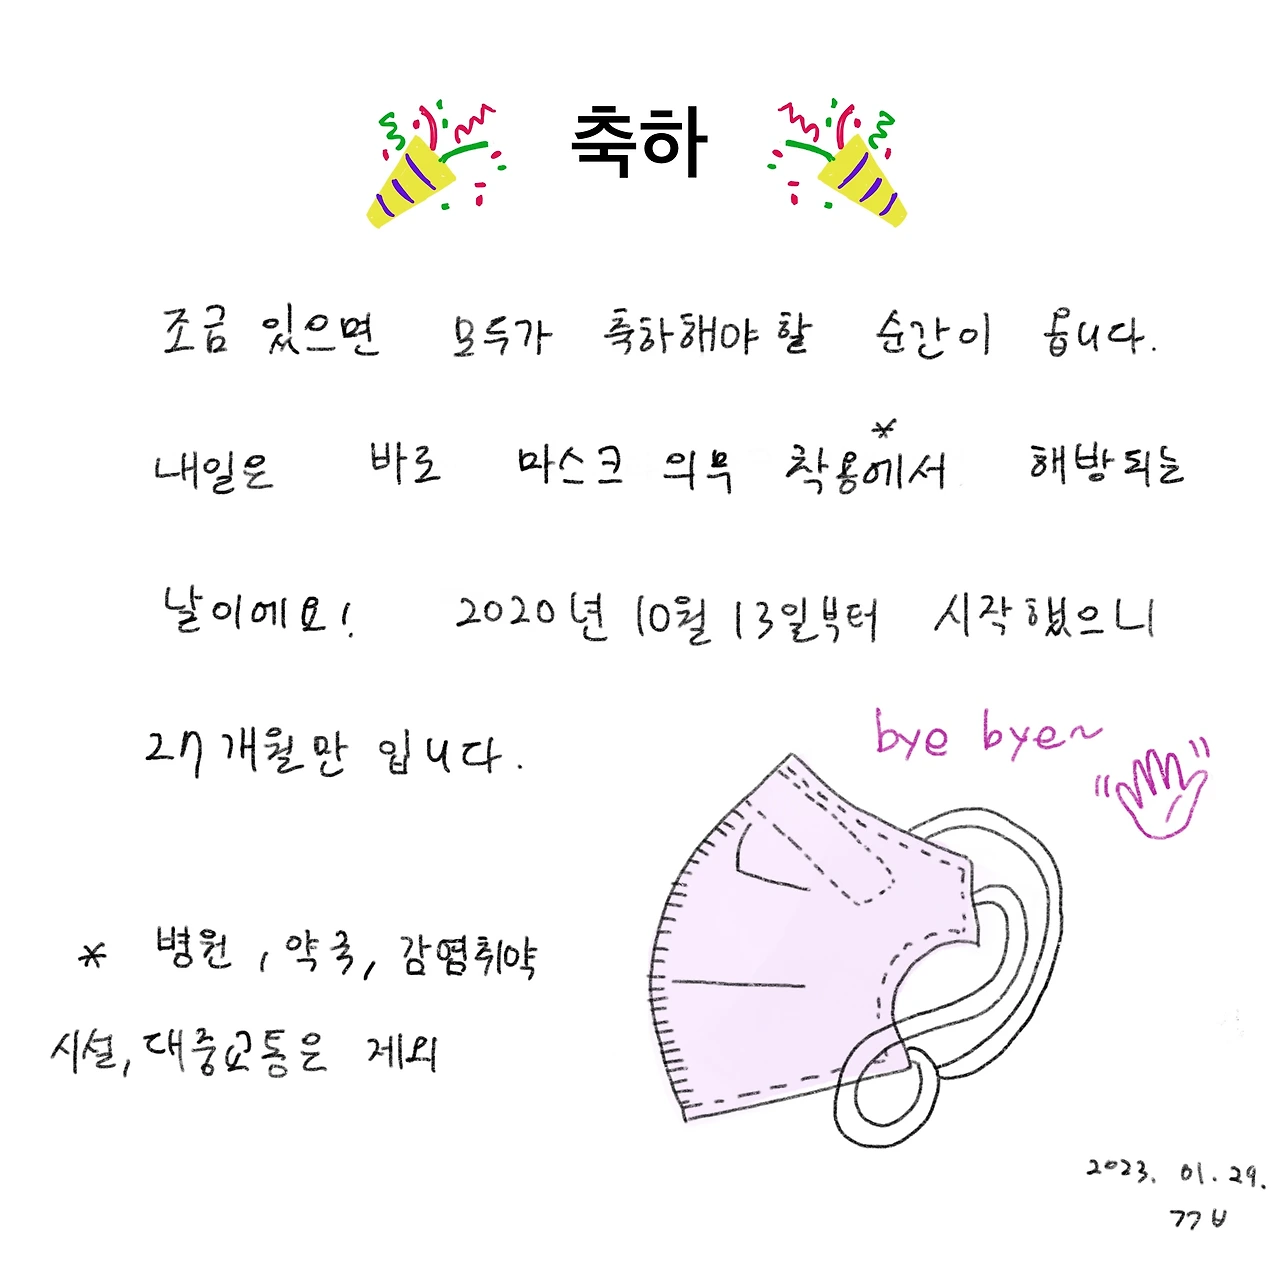 축하
조금 있으면 모두가 축하해야 할 순간이 옵니다.
*
내일은 바로 마스크 의무 착용에서 해방되는
날이에요! 2020년 10월 13일부터 시작했으니
27개월만 입니다.
bye bye~
* 병원, 약국, 감염취약
시설, 대중교통은 제외
2023. 01. 29.
ㄱㄱㅂ